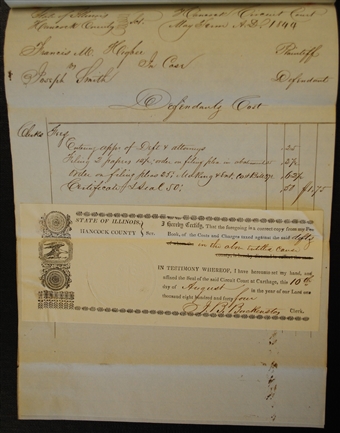 State of Illinois
Hancock County } Sct.
Hancock Circuit Court
May Term A.D. 1844
Francis M. Higbee Plaintiff
vs In Case
Joseph Smith Defendant
Defendants Cost
Clerks Fees
Entering appr of Deft & attorney .25
Filing 2 papers
order on filing pleas 25¢
Certificate & Seal 50¢ 50 $1.75
STATE OF ILLINOIS,
HANCOCK COUNTY } Sct.
I hereby Certify, That the foregoing is a correct copy from my Fee
Book, of the Costs and Charges taxed against the said deft
in the above entitled cause
IN TESTIMONY WHEREOF, I have hereunto set my hand, and
affixed the Seal of the said Circuit Court at Carthage, this 10th
day of August in the year of our Lord one
thousand eight hundred and forty four
J. B. Backenstos Clerk.